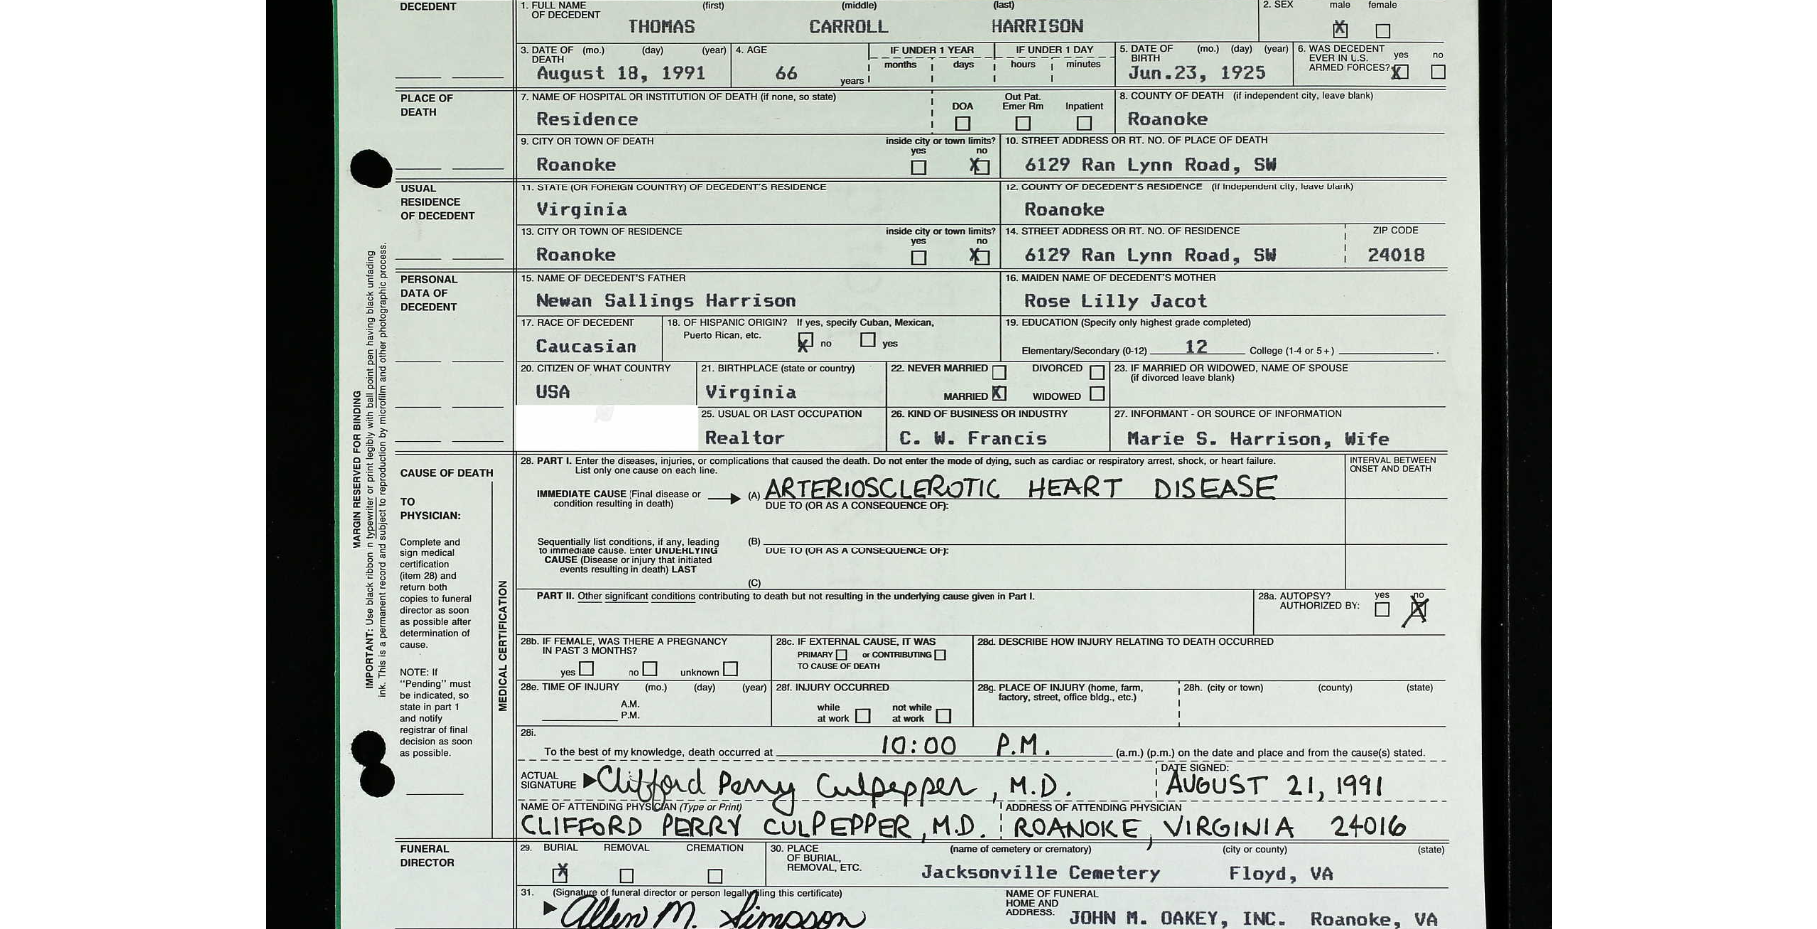 DECEDENT
1. FULL NAME OF DECEDENT (first) (middle) (last)
THOMAS CARROLL HARRISON
2. SEX male female
X
3. DATE OF DEATH (mo.) (day) (year)
August 18, 1991
4. AGE
66 years
IF UNDER 1 YEAR
months days
IF UNDER 1 DAY
hours minutes
5. DATE OF BIRTH (mo.) (day) (year)
Jun.23, 1925
6. WAS DECEDENT EVER IN U.S. ARMED FORCES? yes no
X
PLACE OF DEATH
7. NAME OF HOSPITAL OR INSTITUTION OF DEATH (if none, so state)
Residence
DOA
Out Pat. Emer Rm
Inpatient
8. COUNTY OF DEATH (if independent city, leave blank)
Roanoke
9. CITY OR TOWN OF DEATH
Roanoke
inside city or town limits?
yes no
X
10. STREET ADDRESS OR RT. NO. OF PLACE OF DEATH
6129 Ran Lynn Road, SW
USUAL RESIDENCE OF DECEDENT
11. STATE (OR FOREIGN COUNTRY) OF DECEDENT'S RESIDENCE
Virginia
12. COUNTY OF DECEDENT'S RESIDENCE (if independent city, leave blank)
Roanoke
13. CITY OR TOWN OF RESIDENCE
Roanoke
inside city or town limits?
yes no
X
14. STREET ADDRESS OR RT. NO. OF RESIDENCE
6129 Ran Lynn Road, SW
ZIP CODE
24018
PERSONAL DATA OF DECEDENT
15. NAME OF DECEDENT'S FATHER
Newan Sallings Harrison
16. MAIDEN NAME OF DECEDENT'S MOTHER
Rose Lilly Jacot
17. RACE OF DECEDENT
Caucasian
18. OF HISPANIC ORIGIN? If yes, specify Cuban, Mexican,
Puerto Rican, etc.
X no yes
19. EDUCATION (Specify only highest grade completed)
Elementary/Secondary (0-12) 12 College (1-4 or 5+)
20. CITIZEN OF WHAT COUNTRY
USA
21. BIRTHPLACE (state or country)
Virginia
22. NEVER MARRIED DIVORCED
MARRIED X WIDOWED
23. IF MARRIED OR WIDOWED, NAME OF SPOUSE
(if divorced leave blank)
25. USUAL OR LAST OCCUPATION
Realtor
26. KIND OF BUSINESS OR INDUSTRY
C. W. Francis
27. INFORMANT - OR SOURCE OF INFORMATION
Marie S. Harrison, Wife
MARGIN RESERVED FOR BINDING
IMPORTANT: Use black ribbon n typewriter or print legibly with ball point pen having black unfading
ink. This is a permanent record and subject to reproduction by microfilm and other photographic process.
CAUSE OF DEATH
TO PHYSICIAN:
Complete and
sign medical
certification
(item 28) and
return both
copies to funeral
director as soon
as possible after
determination of
cause.
NOTE: If
"Pending" must
be indicated, so
state in part 1
and notify
registrar of final
decision as soon
as possible.
MEDICAL CERTIFICATION
28. PART I. Enter the diseases, injuries, or complications that caused the death. Do not enter the mode of dying, such as cardiac or respiratory arrest, shock, or heart failure.
List only one cause on each line.
INTERVAL BETWEEN ONSET AND DEATH
IMMEDIATE CAUSE (Final disease or
condition resulting in death)
(A) ARTERIOSCLEROTIC HEART DISEASE
DUE TO (OR AS A CONSEQUENCE OF):
Sequentially list conditions, if any, leading
to immediate cause. Enter UNDERLYING
CAUSE (Disease or injury that initiated
events resulting in death) LAST
(B)
DUE TO (OR AS A CONSEQUENCE OF):
(C)
PART II. Other significant conditions contributing to death but not resulting in the underlying cause given in Part I.
28a. AUTOPSY? yes no
AUTHORIZED BY: X
28b. IF FEMALE, WAS THERE A PREGNANCY
IN PAST 3 MONTHS?
yes no unknown
28c. IF EXTERNAL CAUSE, IT WAS
PRIMARY or CONTRIBUTING
TO CAUSE OF DEATH
28d. DESCRIBE HOW INJURY RELATING TO DEATH OCCURRED
28e. TIME OF INJURY (mo.) (day) (year)
A.M.
P.M.
28f. INJURY OCCURRED
while at work
not while at work
28g. PLACE OF INJURY (home, farm,
factory, street, office bldg., etc.)
28h. (city or town) (county) (state)
28i.
To the best of my knowledge, death occurred at 10:00 P.M. (a.m.) (p.m.) on the date and place and from the cause(s) stated.
ACTUAL SIGNATURE Clifford Perry Culpepper, M.D.
DATE SIGNED:
AUGUST 21, 1991
NAME OF ATTENDING PHYSICIAN (Type or Print)
CLIFFORD PERRY CULPEPPER, M.D.
ADDRESS OF ATTENDING PHYSICIAN
ROANOKE, VIRGINIA 24016
FUNERAL DIRECTOR
29. BURIAL REMOVAL CREMATION
X
30. PLACE OF BURIAL, REMOVAL, ETC.
(name of cemetery or crematory) (city or county) (state)
Jacksonville Cemetery Floyd, VA
31. (Signature of funeral director or person legally filing this certificate)
Allen M. Simpson
NAME OF FUNERAL HOME AND ADDRESS.
JOHN M. OAKEY, INC. Roanoke, VA